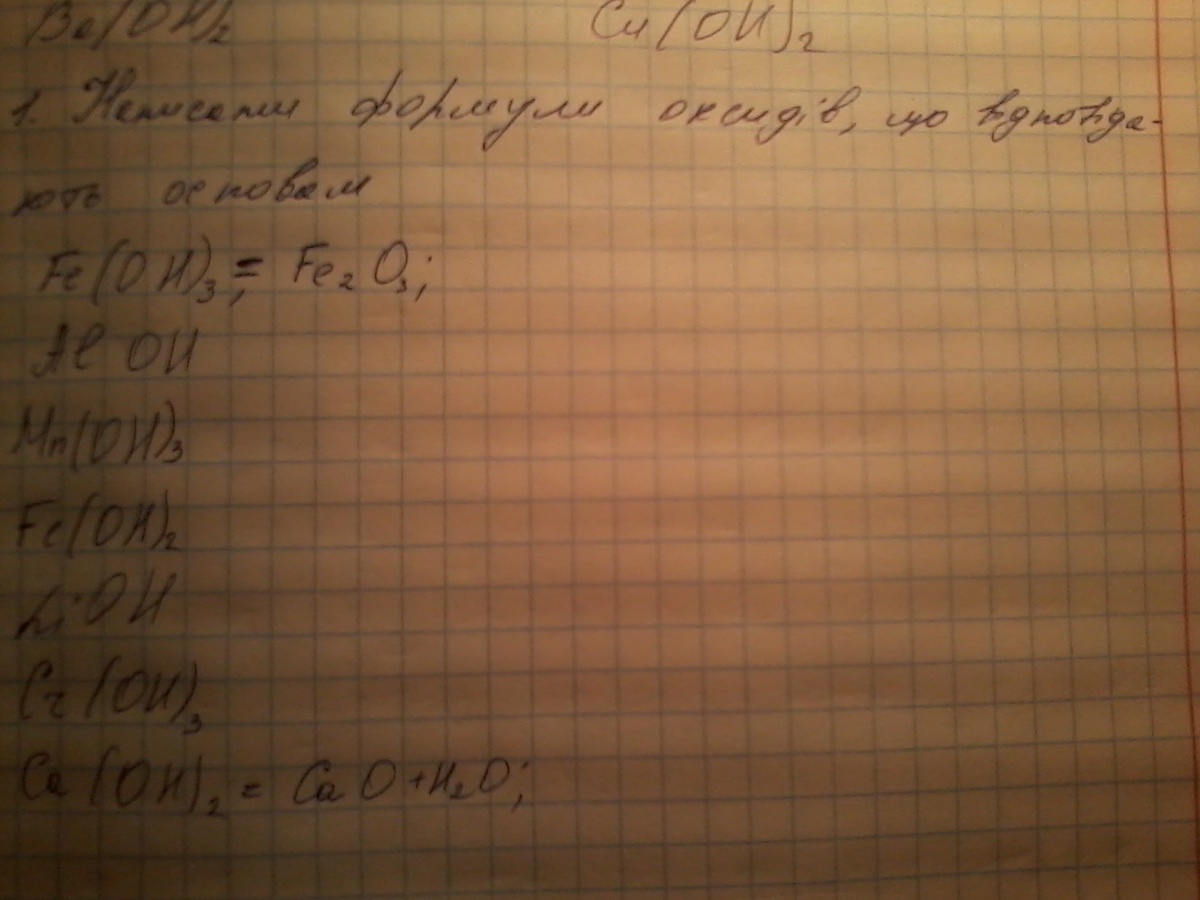 Ba(OH)₂ Cu(OH)₂
1. Написати формули оксидів, що відповіда-
ють основам
Fe(OH)₃; = Fe₂O₃;
Al OH
Mn(OH)₃
Fe(OH)₂
LiOH
Cr(OH)₃
Ca(OH)₂ = CaO+H₂O;